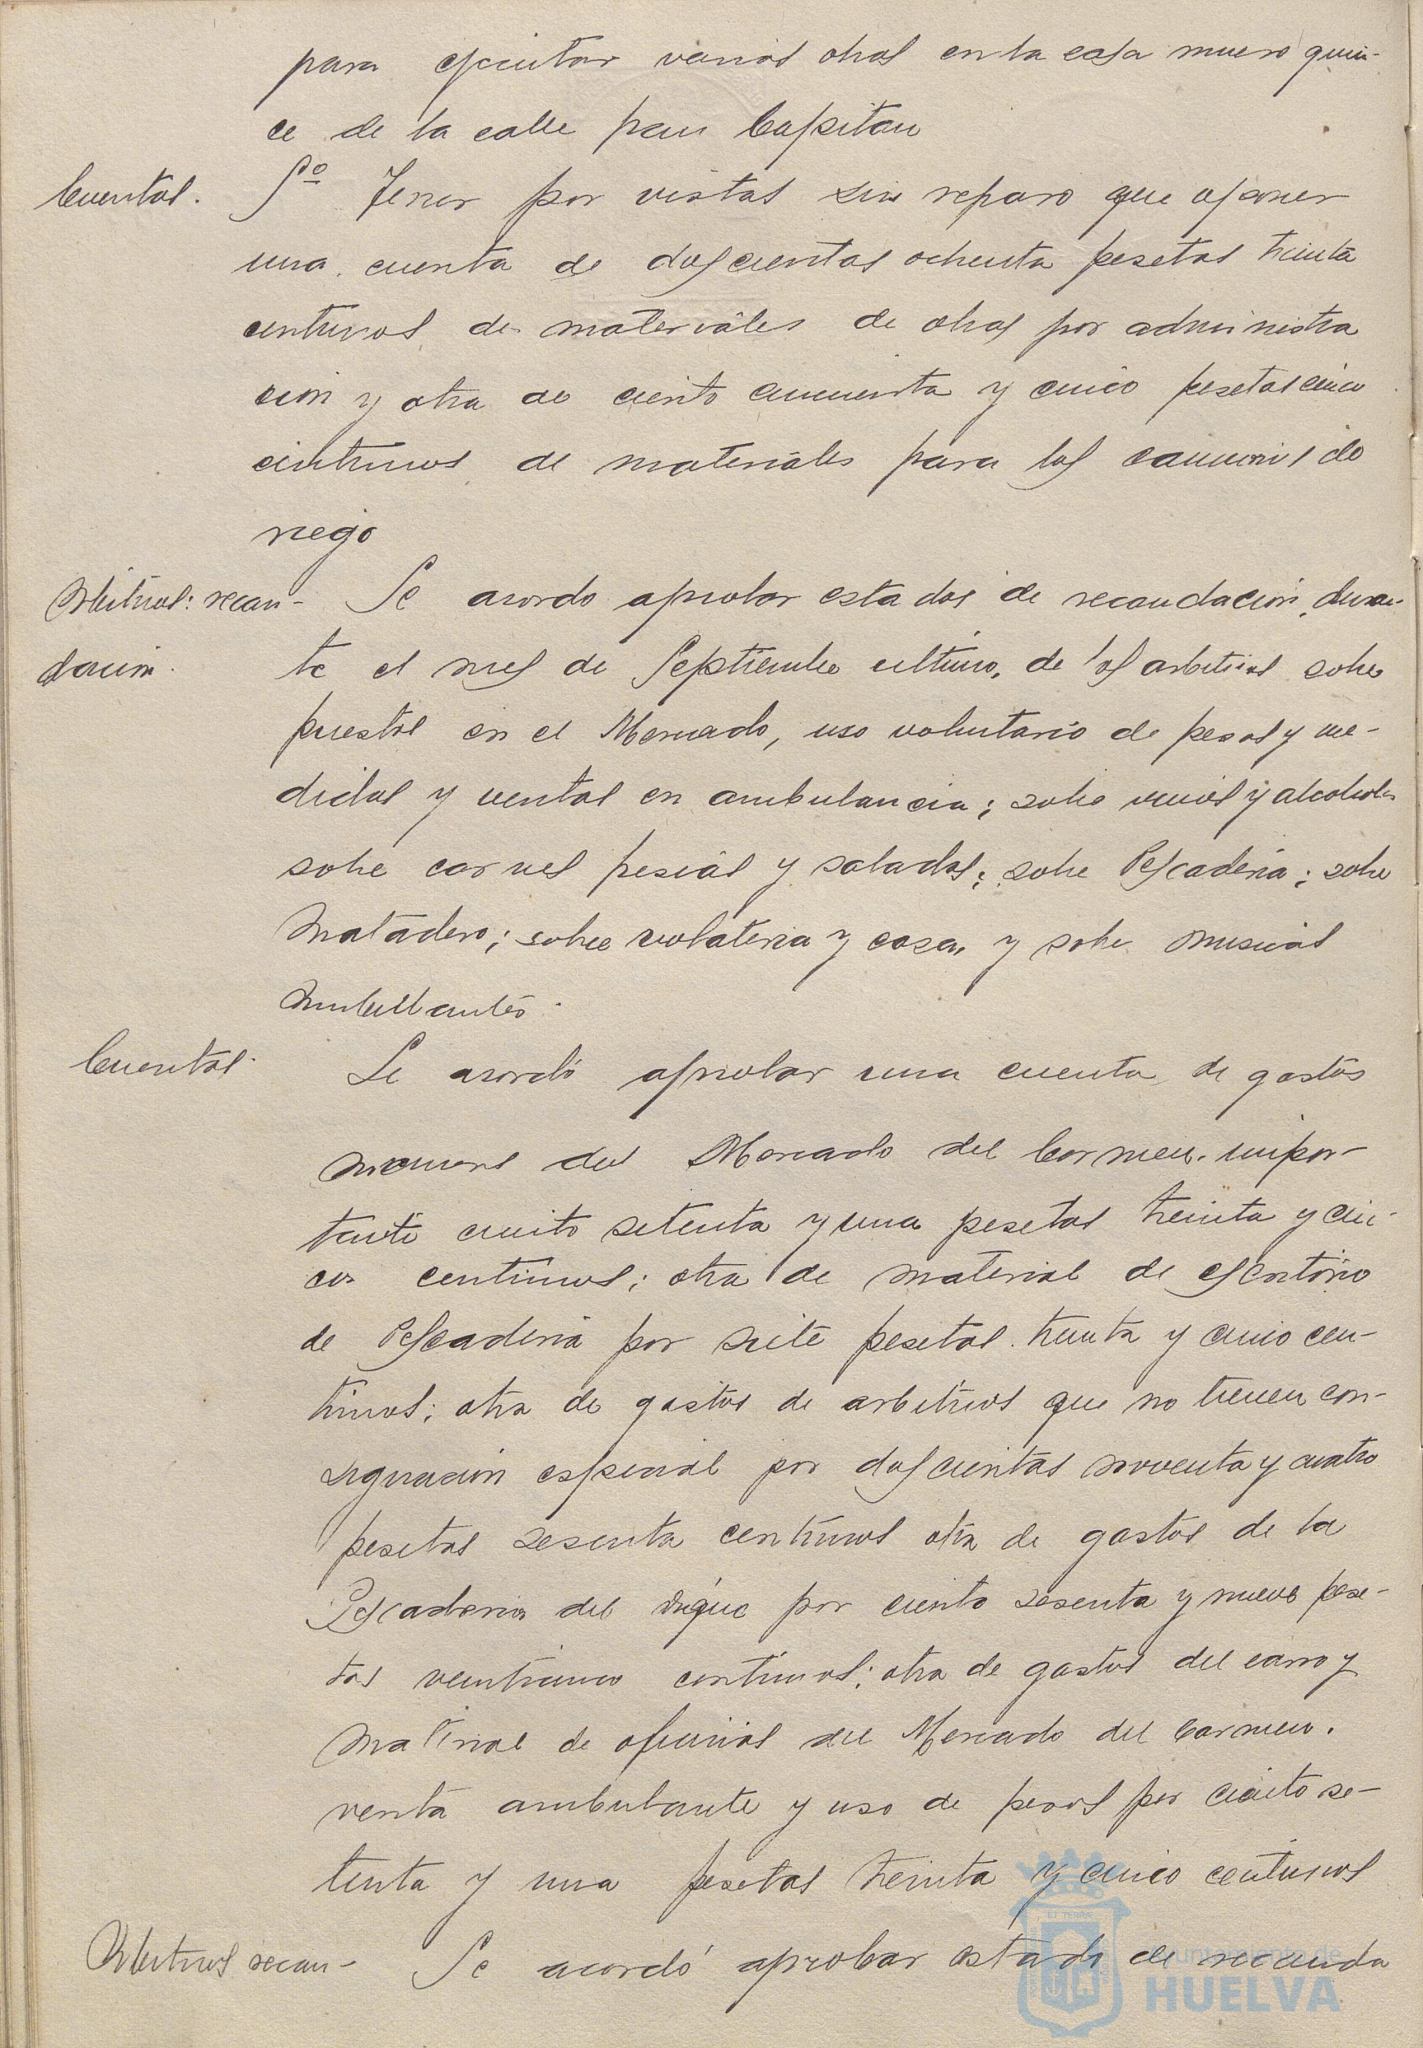 para ejecutar varias obras en la casa numero quin-
ce de la calle Gran Capitan
Cuentas. 5º Tener por vistas sin reparo que oponer
una cuenta de doscientas ochenta pesetas treinta
centimos de materiales de obras por administra
cion y otra de ciento cincuenta y cinco pesetas cinco
centimos de materiales para los camiones de
riego
Arbitrios: recau- Se acordo aprobar estados de recaudacion, duran-
dacion. te el mes de Septiembre ultimo, de los arbitrios sobre
puestos en el Mercado, uso voluntario de pesas y me-
didas y ventas en ambulancia; sobre vinos y alcoholes
sobre carnes frescas y saladas; sobre Pescaderia; sobre
Matadero; sobre volateria y caza, y sobre musicas
ambulantes.
Cuentas. Se acordó aprobar una cuenta de gastos
menores del Mercado del Carmen, impor-
tante ciento setenta y una pesetas treinta y cin-
co centimos; otra de material de escritorio
de Pescaderia por siete pesetas treinta y cinco cen-
timos; otra de gastos de arbitrios que no tienen con-
signacion especial por doscientas noventa y cuatro
pesetas sesenta centimos otra de gastos de la
Pescaderia del dique por ciento sesenta y nueve pese-
tas veinticinco centimos; otra de gastos del carro y
material de oficinas del Mercado del Carmen.
venta ambulante y uso de pesas por ciento se-
tenta y una pesetas treinta y cinco centimos
Arbitrios recau- Se acordó aprobar estado de recauda
Ayuntamiento de
HUELVA